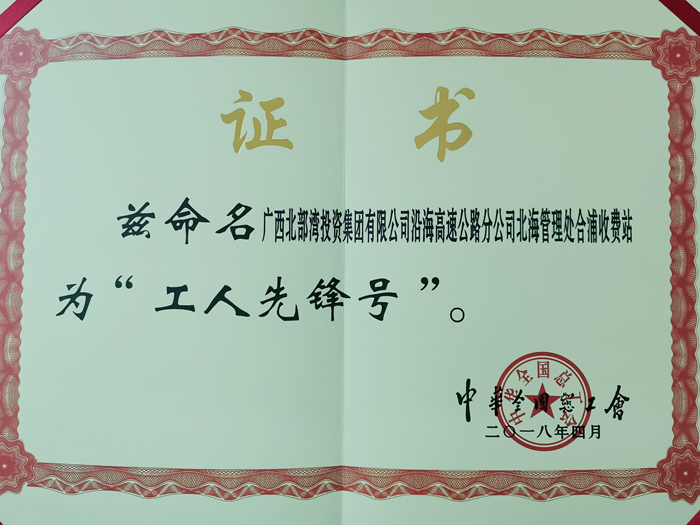 证书
兹命名广西北部湾投资集团有限公司沿海高速公路分公司北海管理处合浦收费站
为“工人先锋号”。
中华全国总工会
中華全国總工會
二〇一八年四月